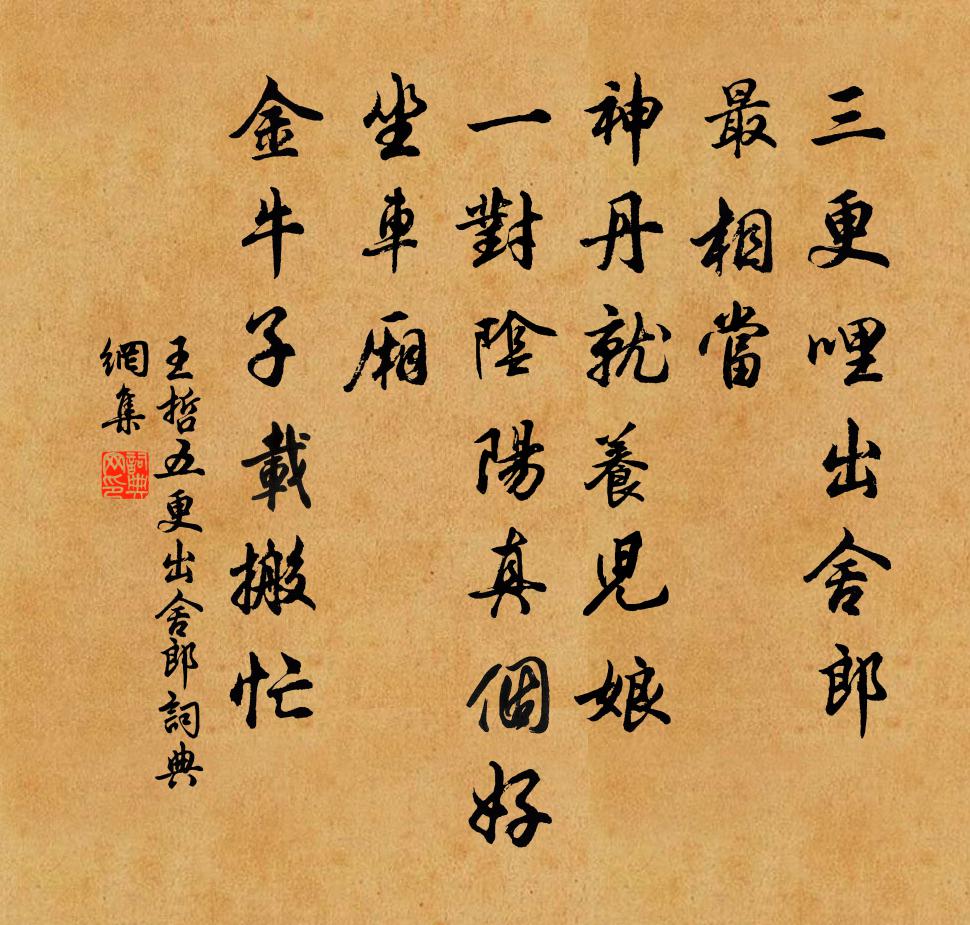 三更哩出舍郎
最相當
神丹就養兒娘
一對陰陽真個好
坐車廂
金牛子載搬忙
王哲五更出舍郎詞典
網集
詞典
网印